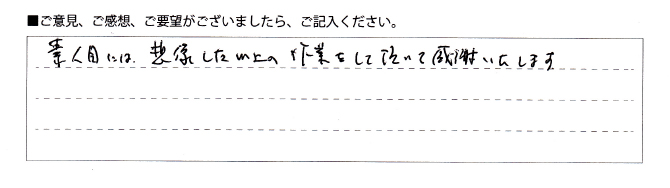 ■ご意見、ご感想、ご要望がございましたら、ご記入ください。
素人目には、想像した以上の作業をして頂いて感謝いたします